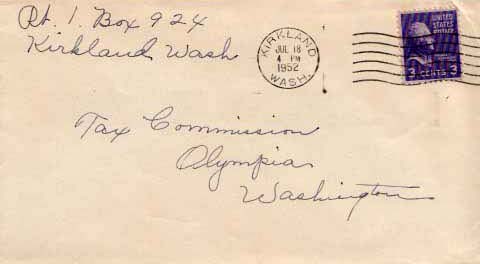 Rt. 1. Box 924
Kirkland Wash
KIRKLAND
JUL 18
4 PM
1952
WASH.
UNITED
STATES
POSTAGE
3 CENTS 3
Tax Commission
Olympia
Washington